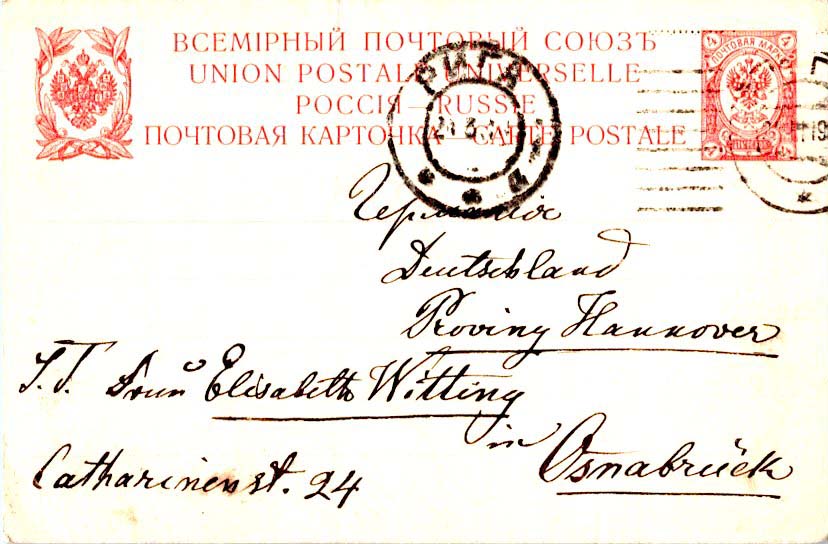 ВСЕМІРНЫЙ ПОЧТОВЫЙ СОЮЗЪ
UNION POSTALE UNIVERSELLE
РОССІЯ – RUSSIE
ПОЧТОВАЯ КАРТОЧКА – CARTE POSTALE
4 ПОЧТОВАЯ МАРКА 4
РИГА
Германіе
Deutschland
Provinz Hannover
S.T. Frau Elisabeth Witting
in Osnabrück
Catharinenst. 24